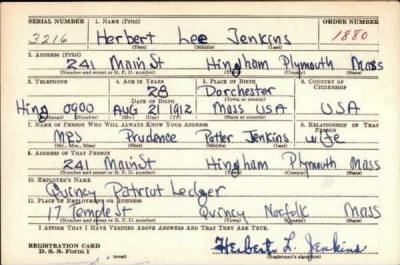 SERIAL NUMBER 1. NAME (Print) ORDER NUMBER
3216 Herbert Lee Jenkins 1880
(First) (Middle) (Last)
2. ADDRESS (Print)
241 Main St Hingham Plymouth Mass
(Number and street or R. F. D. number) (Town) (County) (State)
3. TELEPHONE 4. AGE IN YEARS 5. PLACE OF BIRTH 6. COUNTRY OF CITIZENSHIP
28 Dorchester
DATE OF BIRTH (Town or county)
Hing 0900 AUG 21 1912 Mass USA USA
(Exchange) (Number) (Mo.) (Day) (Yr.) (State or country)
7. NAME OF PERSON WHO WILL ALWAYS KNOW YOUR ADDRESS 8. RELATIONSHIP OF THAT PERSON
MRS Prudence Potter Jenkins wife
(Mr., Mrs., Miss) (First) (Middle) (Last)
9. ADDRESS OF THAT PERSON
241 Main St Hingham Plymouth Mass
(Number and street or R. F. D. number) (Town) (County) (State)
10. EMPLOYER'S NAME
Quincy Patriot Ledger
11. PLACE OF EMPLOYMENT OR BUSINESS
17 Temple St Quincy Norfolk Mass
(Number and street or R. F. D. number) (Town) (County) (State)
I AFFIRM THAT I HAVE VERIFIED ABOVE ANSWERS AND THAT THEY ARE TRUE.
REGISTRATION CARD
D. S. S. Form 1
(over)
Herbert L. Jenkins